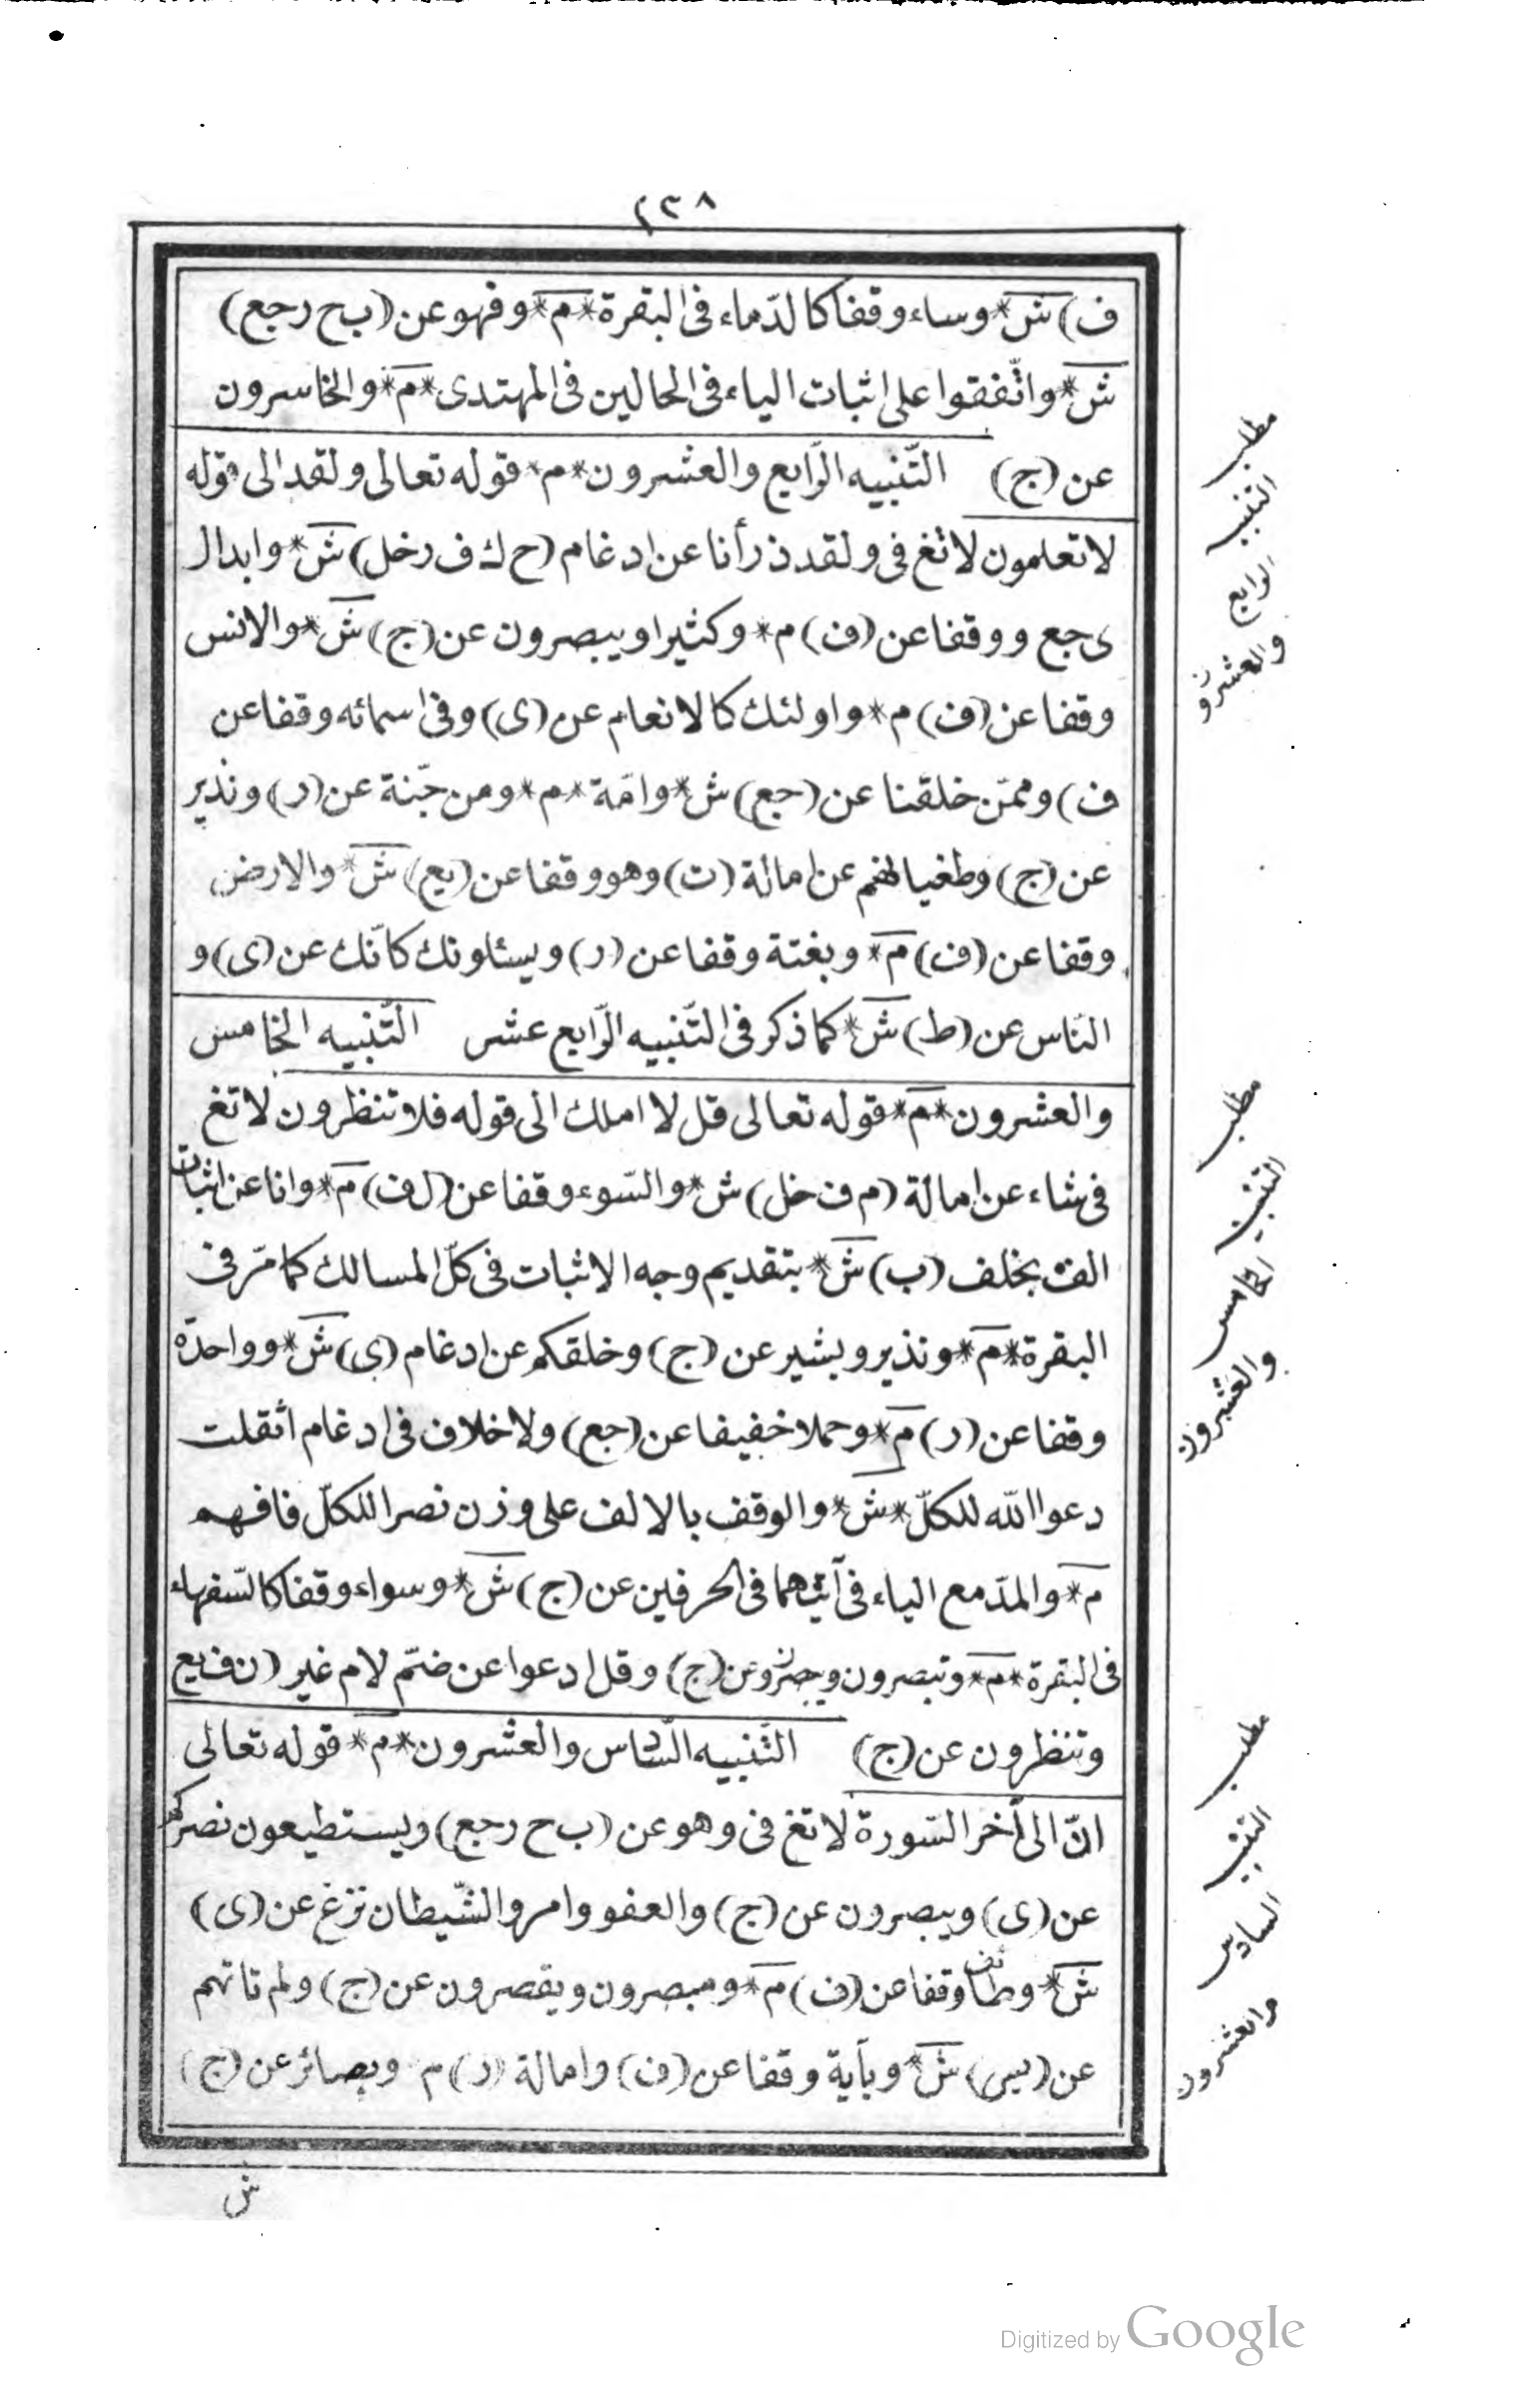 ٢٣٨
ف) ش* وساء وقفا كالدّماء فى البقرة *م* وفهو عن (ب ح رجع)
ش* واتّفقوا على اثبات الياء فى الحالين فى المهتدى *م* والخاسرون
عن (ج) التّنبيه الرّابع والعشرون *م* قوله تعالى ولقد الى قوله
لا تعلمون لا تغ فى ولقد ذرأنا عن ادغام (ح ك ف رخل) ش* وابدال
ى جع ووقفا عن (ف) م* وكثيرا ويبصرون عن (ج) ش* والانس
وقفا عن (ف) م* واولئك كالانعام عن (ى) وفى اسمائه وقفا عن
ف) وممّن خلقنا عن (جع) ش* وامّة *م* ومن جّنة عن (ر) ونذير
عن (ج) وطغيانهم عن امالة (ت) وهو وقفا عن (يع) ش* والارض
وقفا عن (ف) م* وبغتة وقفا عن (ر) ويسئلونك كانّك عن (ى) و
النّاس عن (ط) ش* كما ذكر فى التّنبيه الرّابع عشر التّنبيه الخامس
والعشرون *م* قوله تعالى قل لا املك الى قوله فلا تنظرون لا تغ
فى شاء عن امالة (م ف خل) ش* والسّوء وقفا عن (ل ف) م* وانا عن اثبات
الف بخلف (ب) ش* بتقديم وجه الاثبات فى كلّ المسالك كما مّر فى
البقرة *م* ونذير وبشير عن (ج) وخلقكم عن ادغام (ى) ش* وواحدة
وقفا عن (ر) م* وحملا خفيفا عن (جع) ولا خلاف فى ادغام اثقلت
دعوا الله للكلّ *ش* والوقف بالالف على وزن نصرا للكلّ فافهم
م* والمدّ مع الياء فى آتيهما فى الحرفين عن (ج) ش* وسواء وقفا كالسّفهاء
فى البقرة *م* وتبصرون عن (ج) وقل ادعوا عن ضمّ لام غير (ن ف يع
وتنظرون عن (ج) التّنبيه السّادس والعشرون *م* قوله تعالى
انّ الى آخر السّورة لا تغ فى وهو عن (ب ح رجع) ويستطيعون نصركم
عن (ى) ويبصرون عن (ج) والعفو وامر والشّيطان نزغ عن (ى)
ش* وطائف وقفا عن (ف) م* ومبصرون ويقصرون عن (ج) ولم تاتهم
عن (يس) ش* وبآية وقفا عن (ف) وامالة (ر) م وبصائر عن (ج)
ش
مطلب
التنبيه
الرابع
والعشرون
مطلب
التنبيه
الخامس
والعشرون
مطلب
التنبيه
السادس
والعشرون
Digitized by Google